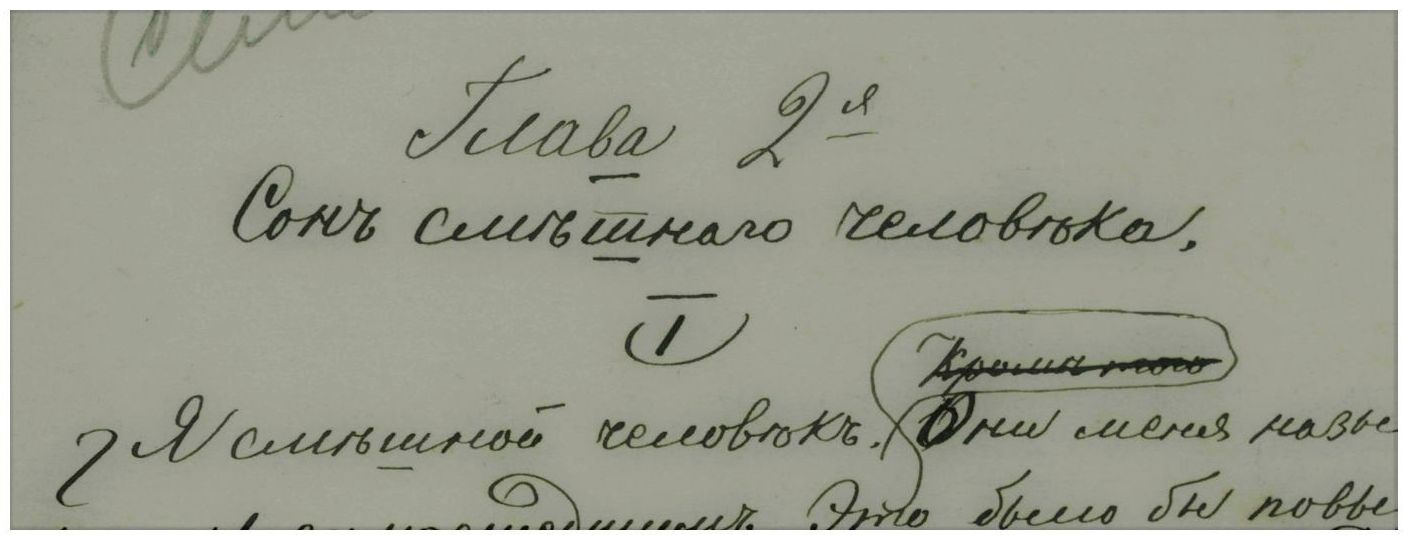 Глава 2я
Сонъ смѣшнаго человѣка.
I
Кромѣ того
Я смѣшной человѣкъ. Они меня назы
сумасшедшимъ. Это было бы повы